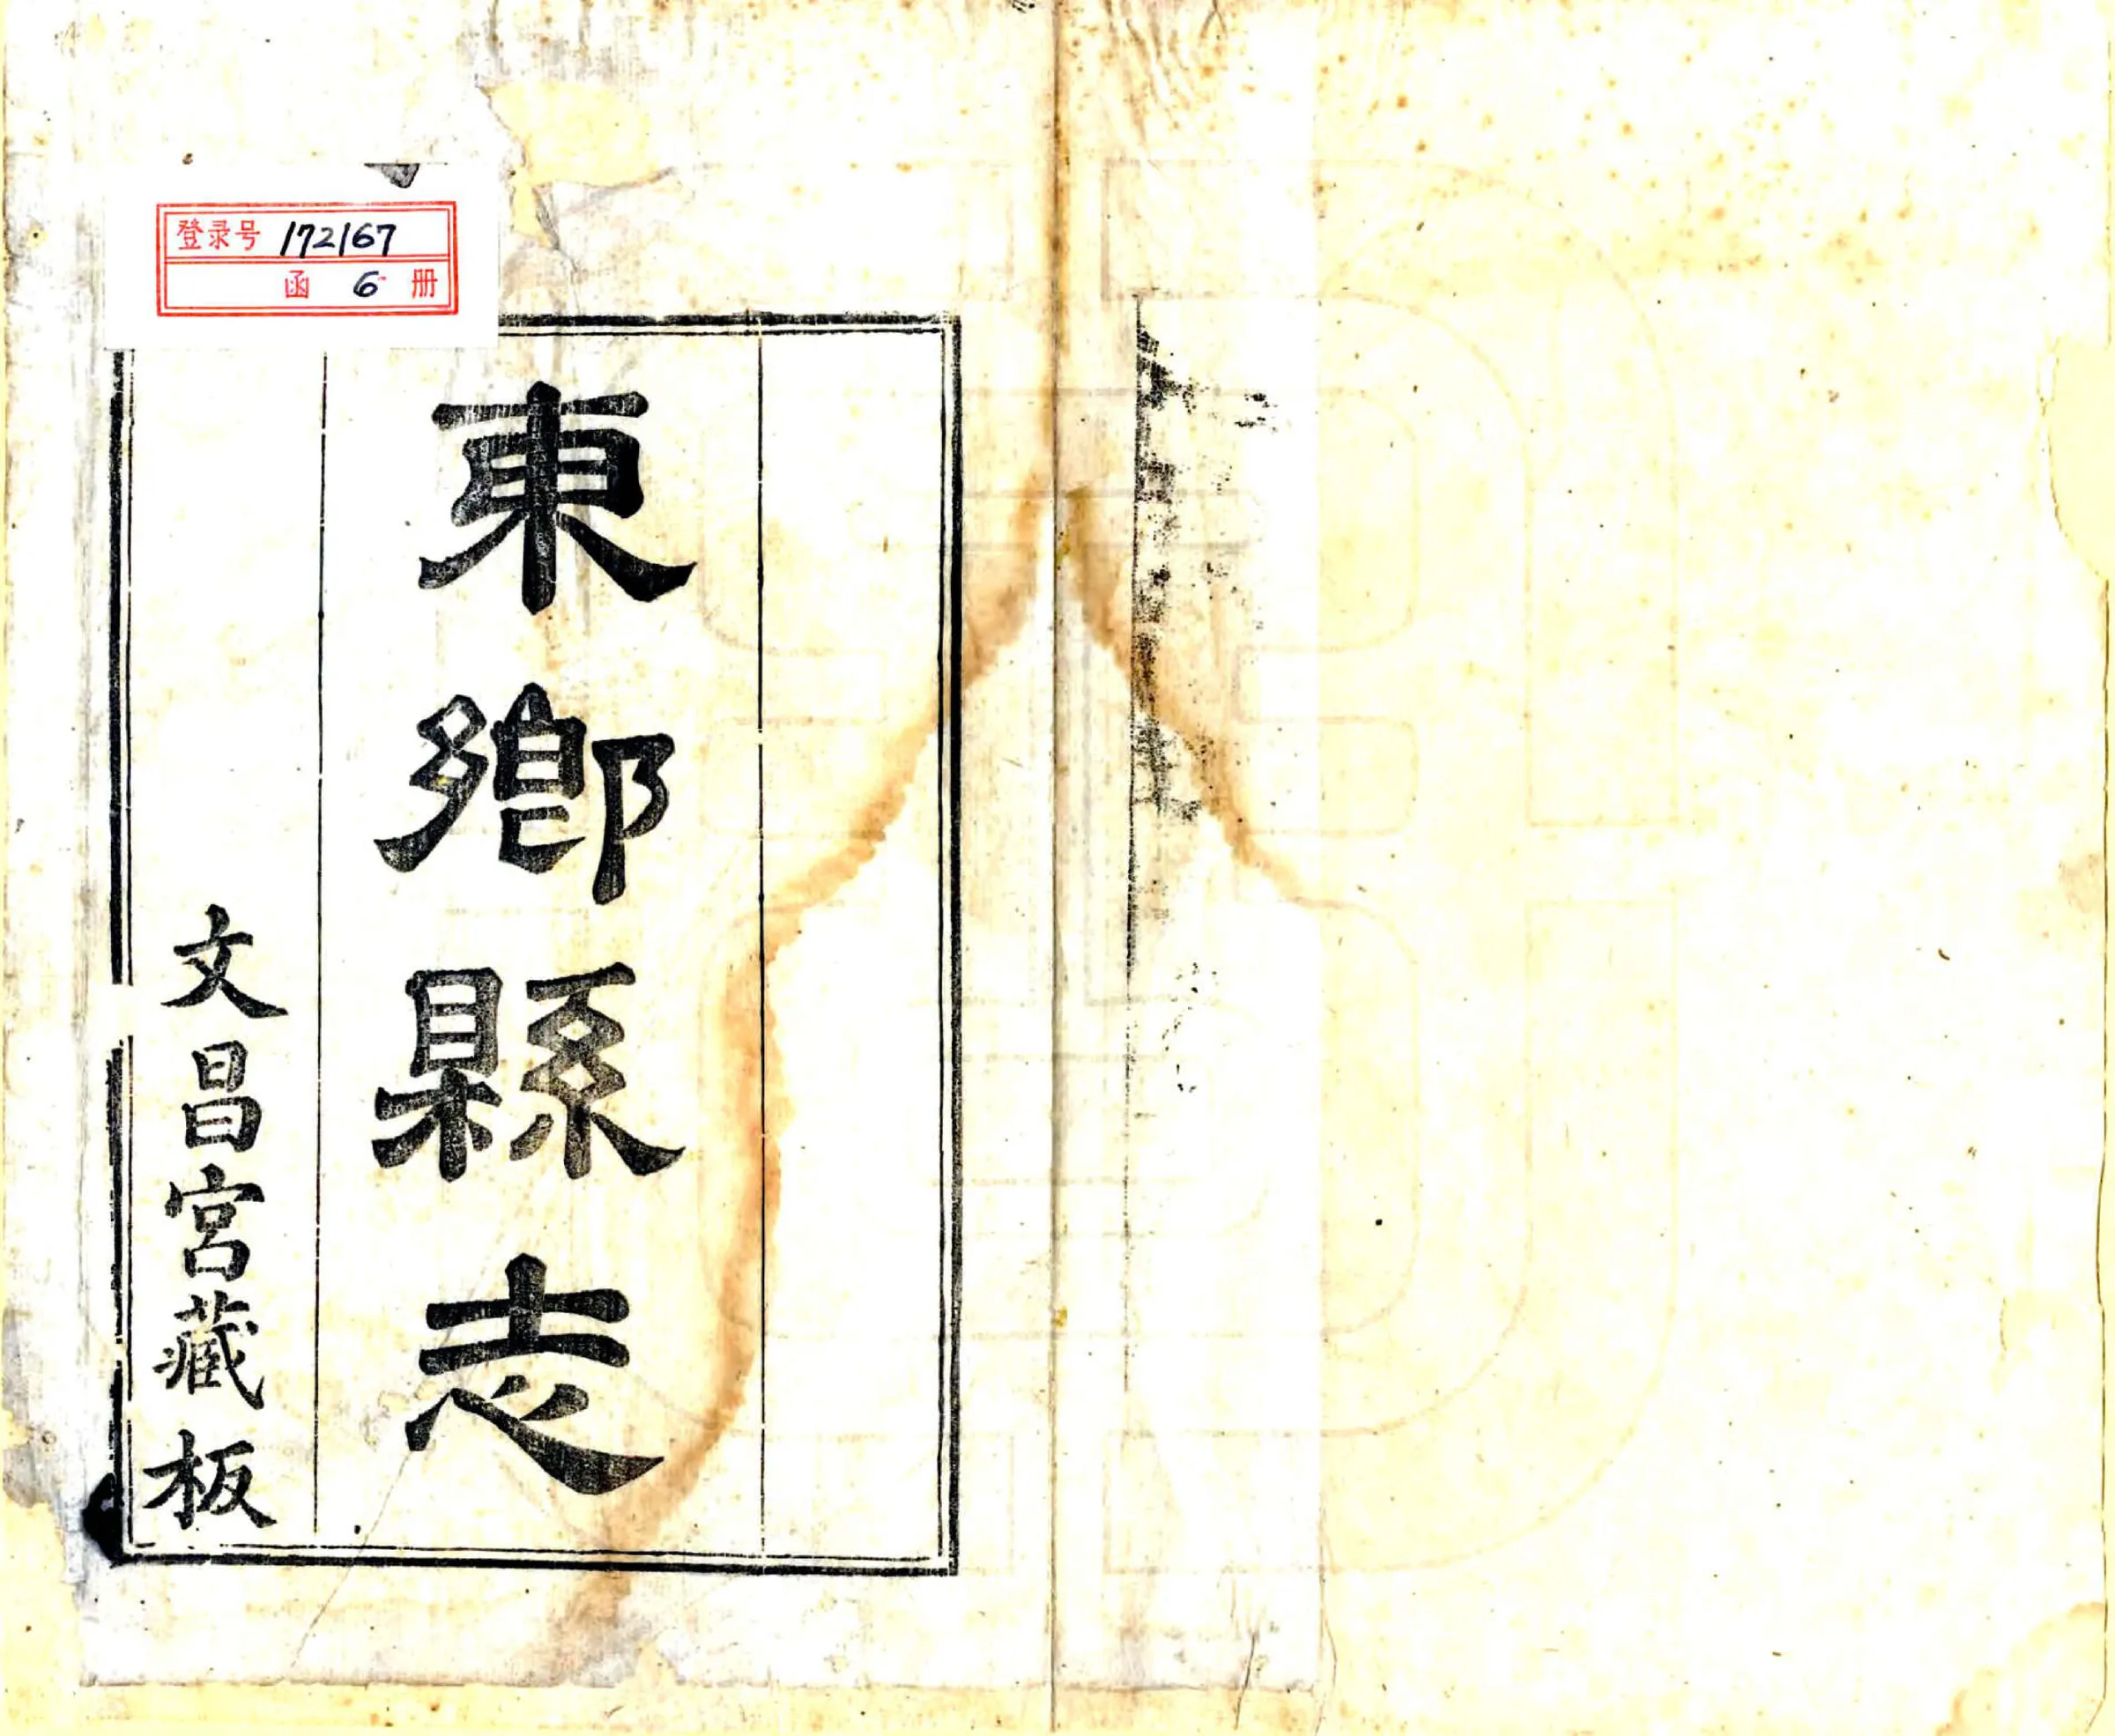 登录号 172167
函 6 册
東鄉縣志
文昌宮藏板